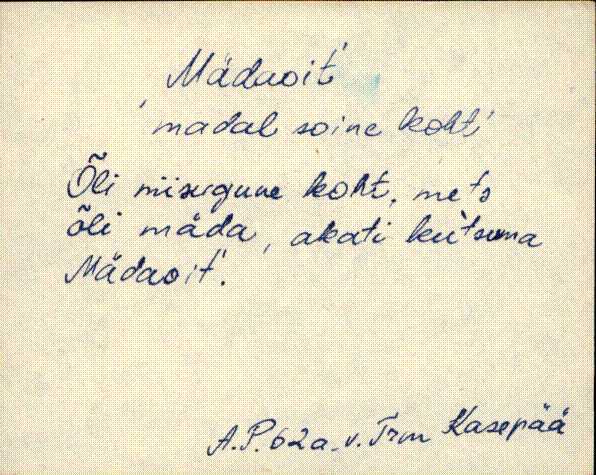 Mädaoit'
'madal soine koht'
Õli niisugune koht, mets
õli mäda, akati kütsuma
Mädaoit'.
A.P. 62a. v. Trm Kasepää